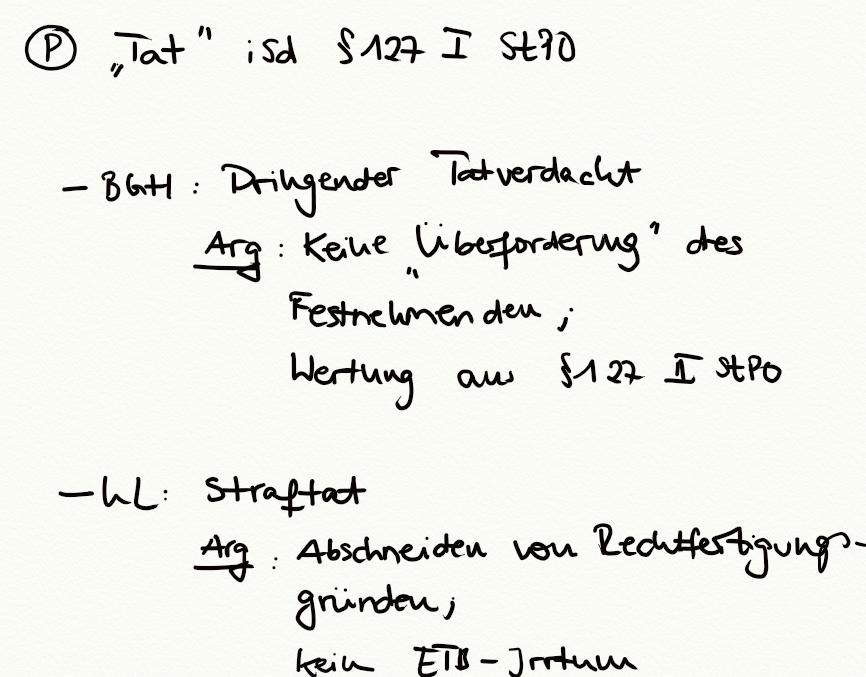 Ⓟ „Tat" iSd §127 I StPO
- BGH: Dringender Tatverdacht
Arg: Keine „Überforderung" des
Festnehmenden;
Wertung aus §127 II StPO
- hL: Straftat
Arg: Abschneiden von Rechtfertigungs-
gründen;
kein ETB-Irrtum